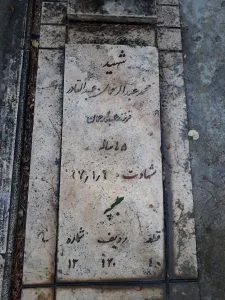 شهید
محمد عبدالرحمن عبدالقادر
فرزند عبدالرحمن
۱۵ ساله
شهادت ۶۷/۱/۹
قطعه ردیف شماره
۴۰ ۱۲۰ ۱۳